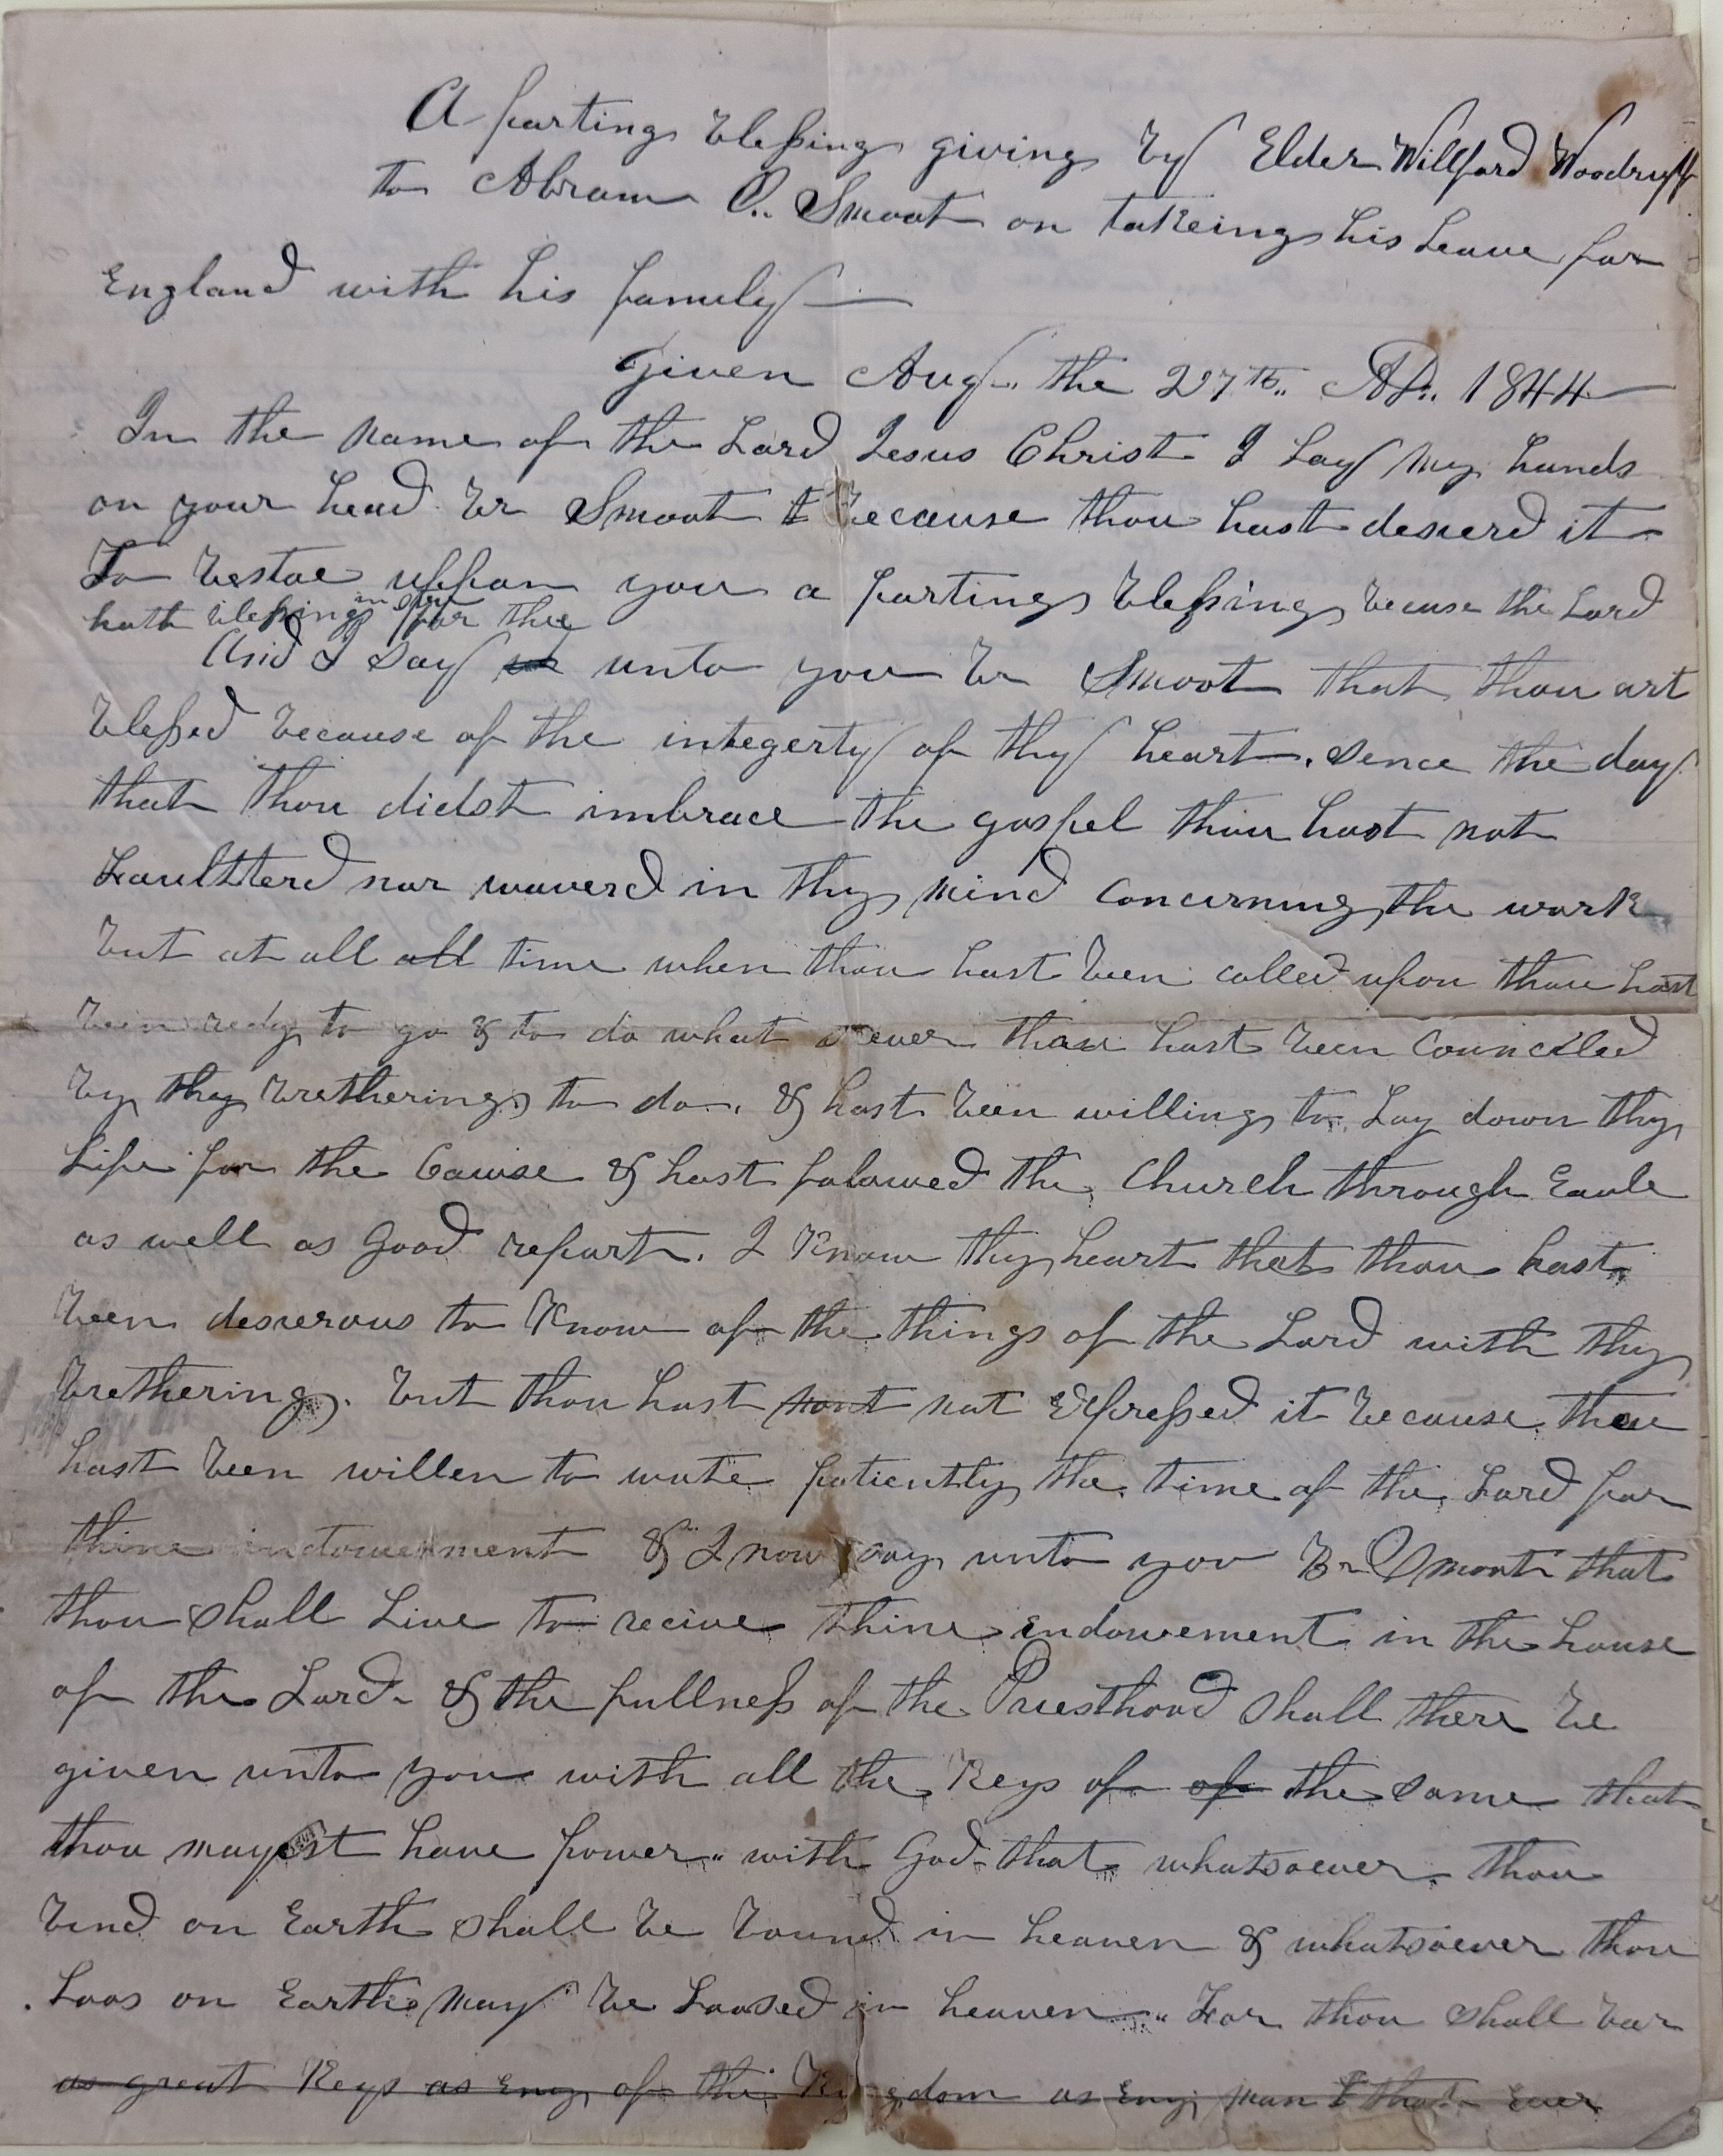 A parting blessing giving by Elder Willford Woodruff
to Abram O.. Smoot on takeing his leave for
England with his family
Given Aug.. the 27th.. AD.. 1844
In the name of the Lord Jesus Christ I Lay my hands
on your head Br Smoot t because thou hast desierd it
To bestoe uppon you a parting blessing becuse the Lord
hath blessings in store for thee
And I Say un unto you Br Smoot that thou art
blessed because of the integerty of thy heart. Sence the day
that thou didst imbrace the gospel thou hast not
Faultterd nor waverd in thy mind concerning the work
but at all all time when thou hast been called upon thou hast
been redy to go & to do what soever thou hast been Counciled
by thy bretherings to do. & hast been willing to Lay down thy
Life for the Cause & hast folowed the Church through Eavle
as well as Good report. I Know thy heart that thou hast
been desierous to Know of the things of the Lord with thy
brethering. but thou hast nont not Expressed it because thou
hast been willen to wate patiently the time of the Lord for
thine indowement & I now say unto you Br Smoot that
thou shall Live to recive thine endowement in the house
of the Lord & the fullness of the Priesthood shall there be
given unto you with all the Keys of of the same that
thou mayest have power.. with God that whatsoever thou
bind on Earth shall be bound in heaven & whatsoever thou
Loos on Earth may be Loosed in heaven.. For thou shall bear
as great Keys as eny of the Kingdom as eny man t that ever